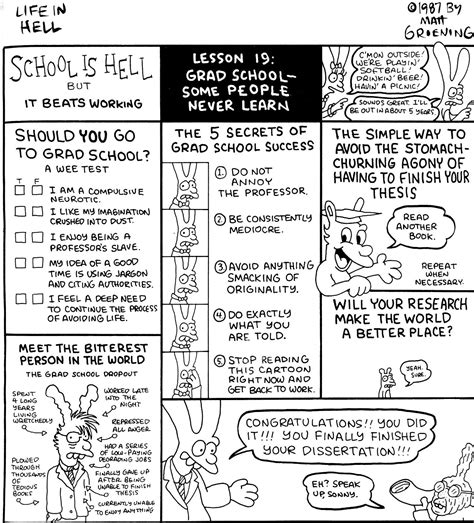 LIFE IN
HELL
©1987 BY
MATT
GROENING
SCHOOL IS HELL
BUT
IT BEATS WORKING
LESSON 19:
GRAD SCHOOL—
SOME PEOPLE
NEVER LEARN
C'MON OUTSIDE!
WE'RE PLAYIN'
SOFTBALL!
DRINKIN' BEER!
HAVIN' A PICNIC!
SOUNDS GREAT. I'LL
BE OUT IN ABOUT 5 YEARS.
SHOULD YOU GO
TO GRAD SCHOOL?
A WEE TEST
T F
I AM A COMPULSIVE
NEUROTIC.
I LIKE MY IMAGINATION
CRUSHED INTO DUST.
I ENJOY BEING A
PROFESSOR'S SLAVE.
MY IDEA OF A GOOD
TIME IS USING JARGON
AND CITING AUTHORITIES.
I FEEL A DEEP NEED
TO CONTINUE THE PROCESS
OF AVOIDING LIFE.
THE 5 SECRETS OF
GRAD SCHOOL SUCCESS
① DO NOT
ANNOY
THE PROFESSOR.
② BE CONSISTENTLY
MEDIOCRE.
③ AVOID ANYTHING
SMACKING OF
ORIGINALITY.
④ DO EXACTLY
WHAT YOU
ARE TOLD.
⑤ STOP READING
THIS CARTOON
RIGHT NOW AND
GET BACK TO WORK.
THE SIMPLE WAY TO
AVOID THE STOMACH-
CHURNING AGONY OF
HAVING TO FINISH YOUR
THESIS
READ
ANOTHER
BOOK.
REPEAT
WHEN
NECESSARY.
WILL YOUR RESEARCH
MAKE THE WORLD
A BETTER PLACE?
YEAH.
SURE.
MEET THE BITTEREST
PERSON IN THE WORLD
THE GRAD SCHOOL DROPOUT
SPENT
4 LONG
YEARS
LIVING
WRETCHEDLY
PLOWED
THROUGH
THOUSANDS
OF
TEDIOUS
BOOKS
WORKED LATE
INTO THE
NIGHT
REPRESSED
ALL ANGER
HAD A SERIES
OF LOW-PAYING
DEGRADING JOBS
FINALLY GAVE UP
AFTER BEING
UNABLE TO FINISH
THESIS
CURRENTLY UNABLE
TO ENJOY ANYTHING
CONGRATULATIONS!! YOU DID
IT!!! YOU FINALLY FINISHED
YOUR DISSERTATION!!!
EH? SPEAK
UP, SONNY.